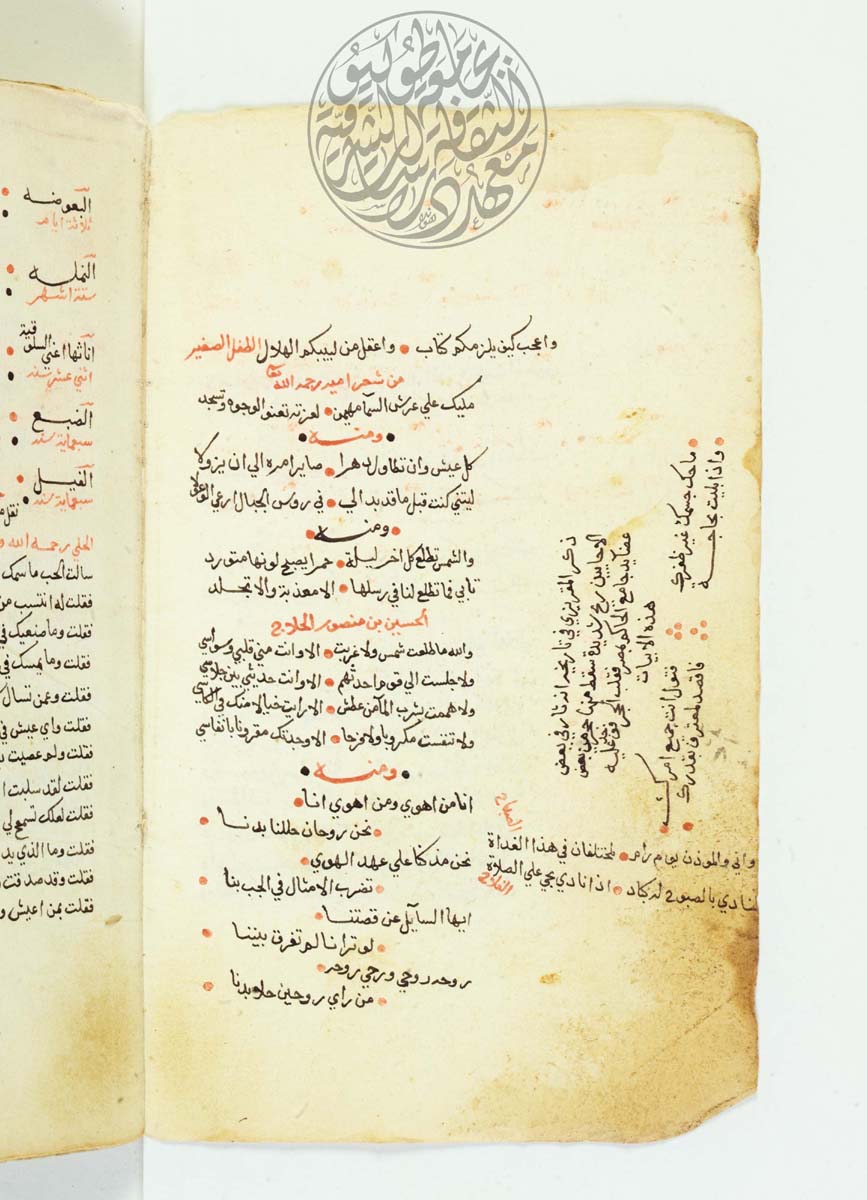 معهد دراسات الثقافة الشرقية بجامعة طوكيو
واعجب كيف يلزمكم كتاب • واعقل من لبيبكم الهلال الطفل الصغير
من شعر اميه رحمه الله تعا
مليك علي عرش السمآ مهيمن • لعزته تعنو الوجوه وتسجد
• ومنه •
كل عيش وان تطاول دهرا • صاير امره الي ان يزولا
ليتني كنت قبل ما قد بدا لي • في روس الجبال ارعي الوعولا
• ومنه •
والشمس تطلع كل اخر ليلة • حمرا يصبح لونها متورد
تابي فما تطلع لنا في رسلها • الا معذبة والا تجلد
الحسين بن منصور الحلاج
والله ما طلعت شمس ولا غربت • الا وانت مني قلبي ووسواسي
ولا جلست الي قوم احدثهم • الا وانت حديثي بين جلاسي
ولا هممت بشرب المآ من عطش • الا رايت خيالا منك في الكاسي
ولا تنفست مكروبا ولا فرحا • الا وحدتك مقرونا بانفاسي
• ومنه •
انا من اهوي ومن اهوي انا •
• نحن روحان حللنا بدنا •
نحن مذ كنا علي عهد الهوي •
• تضرب الامثال في الحب بنا •
ايها السآيل عن قصتنا •
• لو ترانا لم تفرق بيننا •
روحه روحي وروحي روحه •
• من راي روحين حلا بدنا •
ذكر المقريزي في تاريخه انه ثار في بعض
الاحايين ريح شديدة سقط منها حجر من بعض
عضايد جامع الحاكم بمصر فقلب الحجر فوجد عليه
هذه الابيات
• ما حك جسمك غير ظفرك
فتول انت جميع امرك •
• واذا بليت بحاجة
فاقصد لمعترف بقدرك •
الصباح
واني والموذن يوم رام • لمختلفان في هذا الغداة
انادي بالصبوح له كاد • اذا نادي بحي علي الصلاة
الفلاح
البعوضه
ثلاثة ايام
النمله
ستة اشهر
اناثها اعني السلوقية
اثني عشر سنه
الضبع
سبعماية سنه
الفيل
سبعماية سنه
نقل م
الحلي رحمه الله و
سالت الحب ما سمك
فقلت له انتسب من
فقلت وما صنعيك في
فقلت وما يمسك في
فقلت وعمن تسال ك
فقلت واي عيش في
فقلت ولو عصيت ب
فقلت لقد سلبت ا
فقلت لعلك تسمح لي
فقلت وما الذي يد
فقلت وقد صدقت
فقلت بمن اعيش و